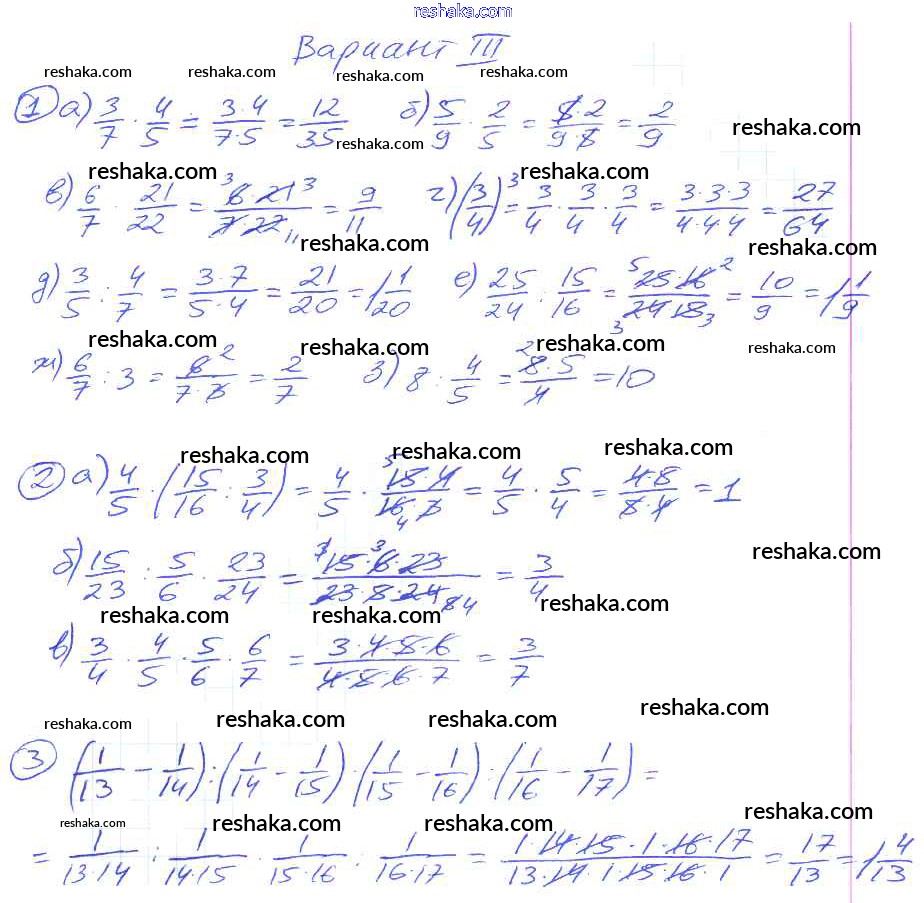 reshaka.com
Вариант III
reshaka.com reshaka.com reshaka.com reshaka.com
1 а) 3/7 · 4/5 = 3·4/7·5 = 12/35 б) 5/9 · 2/5 = 5·2/9·5 = 2/9
reshaka.com reshaka.com
reshaka.com reshaka.com
в) 6/7 · 21/22 = 6·21/7·22 = 9/11 г) (3/4)³ = 3/4 · 3/4 · 3/4 = 3·3·3/4·4·4 = 27/64
reshaka.com reshaka.com
д) 3/5 : 4/7 = 3·7/5·4 = 21/20 = 1 1/20 е) 25/24 : 15/16 = 25·16/24·15 = 10/9 = 1 1/9
reshaka.com reshaka.com reshaka.com reshaka.com
ж) 6/7 : 3 = 6/7·3 = 2/7 з) 8 : 4/5 = 8·5/4 = 10
reshaka.com reshaka.com reshaka.com
2 а) 4/5 · (15/16 : 3/4) = 4/5 · 15·4/16·3 = 4/5 · 5/4 = 4·5/5·4 = 1
reshaka.com
б) 15/23 : 5/6 · 23/24 = 15·6·23/23·5·24 = 3/4
reshaka.com reshaka.com reshaka.com
в) 3/4 · 4/5 · 5/6 · 6/7 = 3·4·5·6/4·5·6·7 = 3/7
reshaka.com reshaka.com reshaka.com reshaka.com
3 (1/13 − 1/14) : (1/14 − 1/15) · (1/15 − 1/16) : (1/16 − 1/17) =
reshaka.com reshaka.com reshaka.com reshaka.com
= 1/13·14 : 1/14·15 · 1/15·16 : 1/16·17 = 1·14·15·1·16·17/13·14·1·15·16·1 = 17/13 = 1 4/13